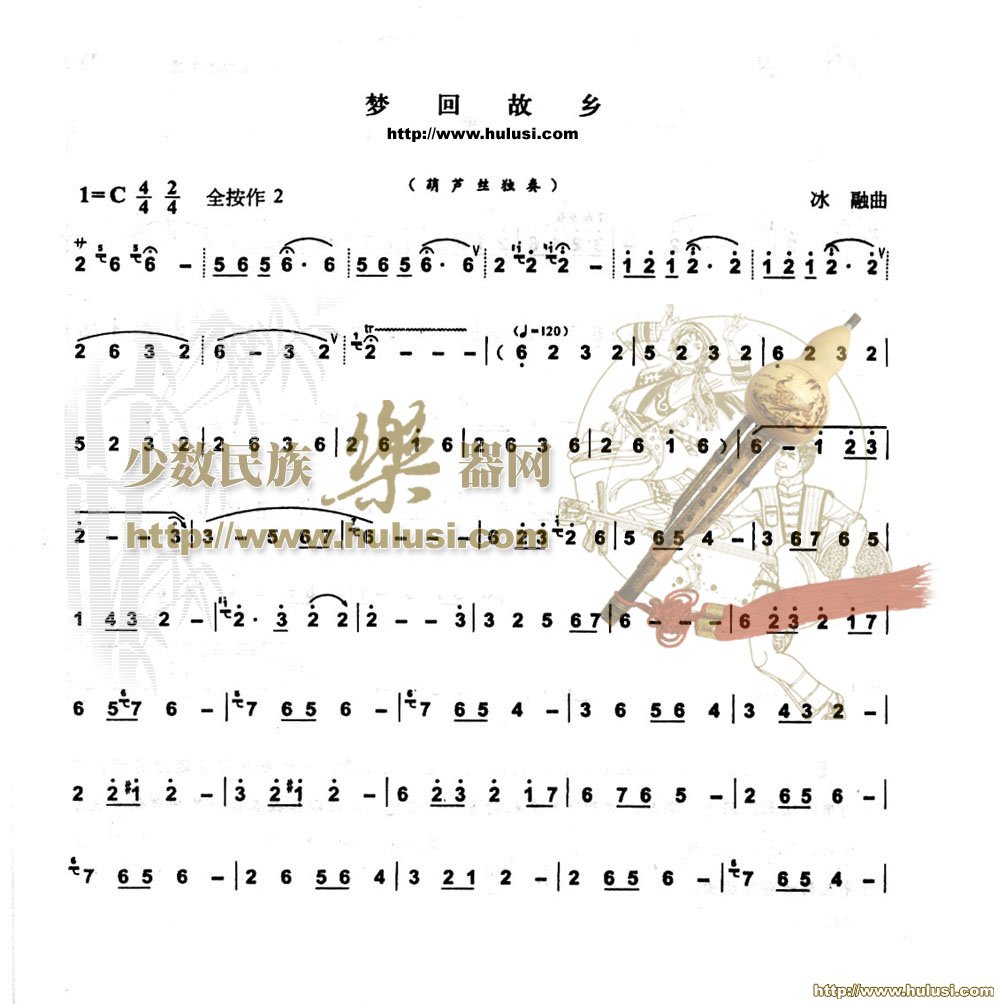 梦 回 故 乡
http://www.hulusi.com
(葫芦丝独奏)
1=C 4/4 2/4 全按作 2
冰 融曲
サ 2 6 6 - 5 6 5 6 · 6 5 6 5 6 · 6 V 2 2 2 - 1 2 1 2 · 2 1 2 1 2 · 2 V
2 6 3 2 6 - 3 2 V tr 2 - - - | ( (♩=120) 6 2 3 2 | 5 2 3 2 | 6 2 3 2 |
5 2 3 2 | 2 6 3 6 | 2 6 1 6 | 2 6 3 6 | 2 6 1 6 ) | 6 - 1 2 3 |
少数民族樂器网
http://www.hulusi.com
2 - - 3 | 3 - 5 6 7 | 6 - - - | 6 2 3 2 6 | 5 6 5 4 - | 3 6 7 6 5 |
1 4 3 2 - | 2 · 3 2 2 | 2 - - 3 | 3 2 5 6 7 | 6 - - - | 6 2 3 2 1 7 |
6 5 7 6 - | 7 6 5 6 - | 7 6 5 4 - | 3 6 5 6 4 | 3 4 3 2 - |
2 2 #1 2 - | 3 2 #1 2 - | 6 2 3 2 1 7 | 6 7 6 5 - | 2 6 5 6 - |
7 6 5 6 - | 2 6 5 6 4 | 3 2 1 2 - | 2 6 5 6 - | 7 6 5 4 - |
http://www.hulusi.com